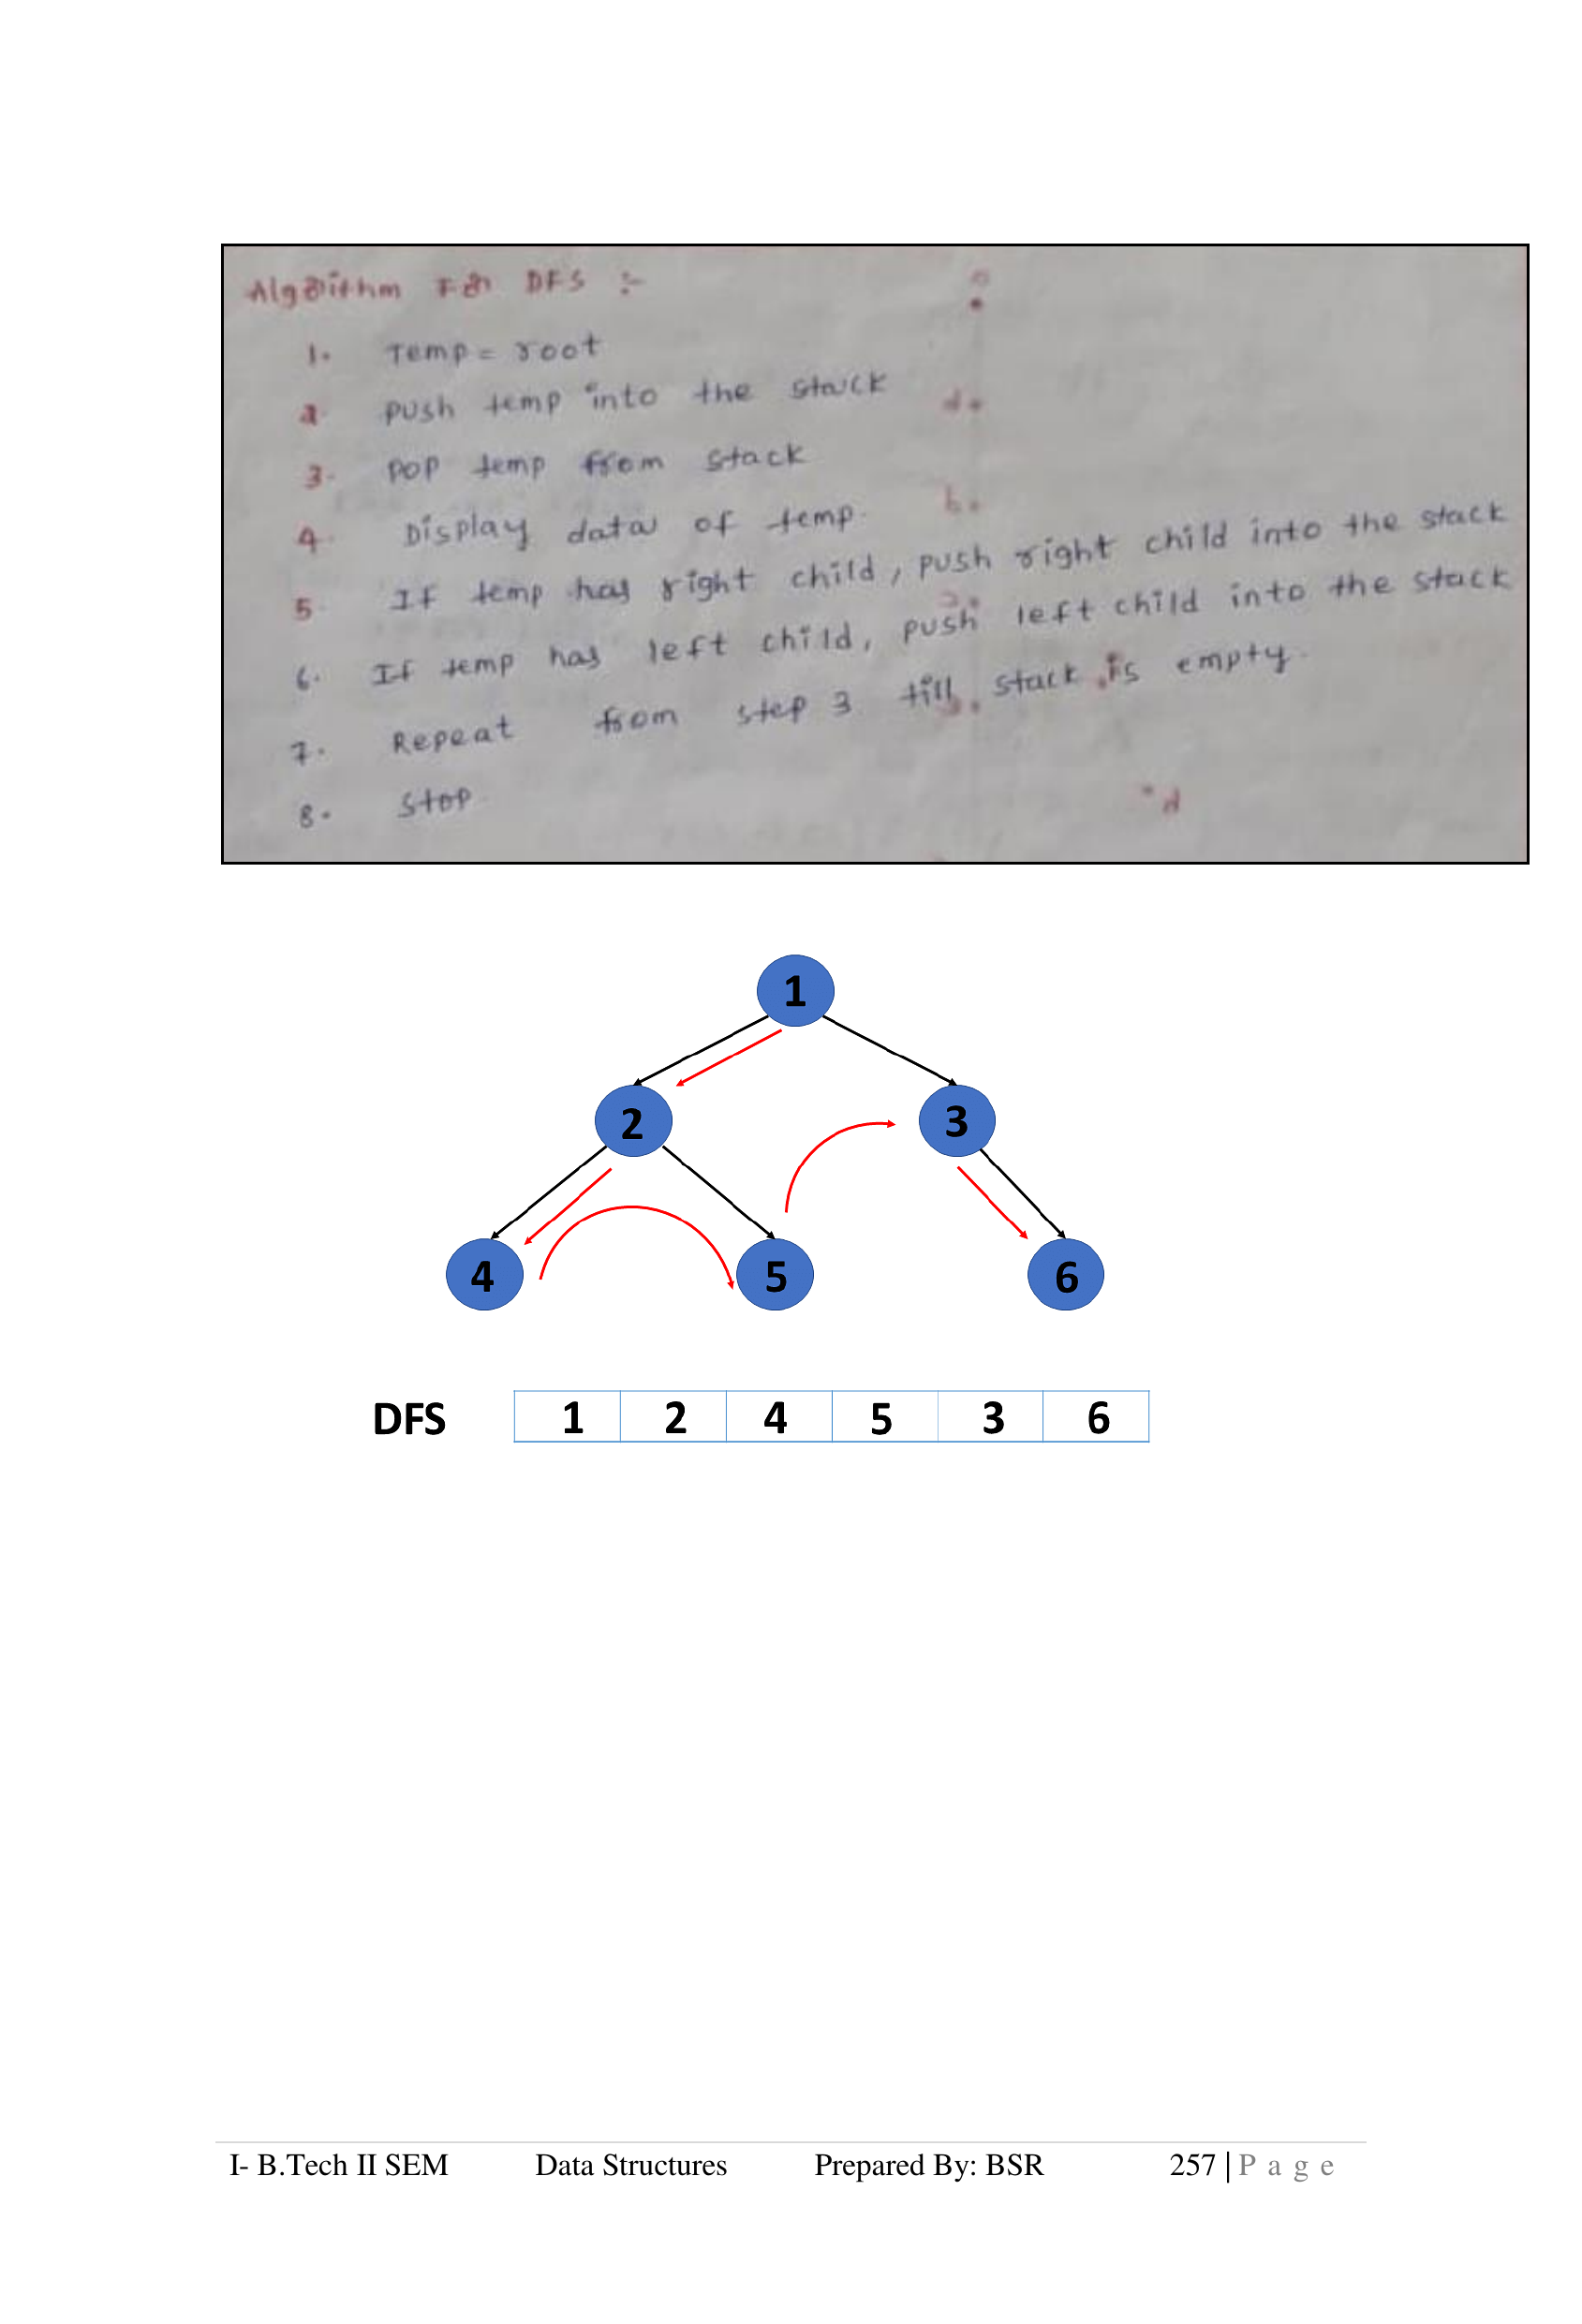 Algorithm For DFS :-
1. Temp = root
2. push temp into the stack
3. pop temp from stack
4. Display data of temp.
5. If temp has right child, push right child into the stack
6. If temp has left child, push left child into the stack
7. Repeat from step 3 till stack is empty.
8. stop
1
2 3
4 5 6
DFS 1 2 4 5 3 6
I- B.Tech II SEM Data Structures Prepared By: BSR 257 | P a g e